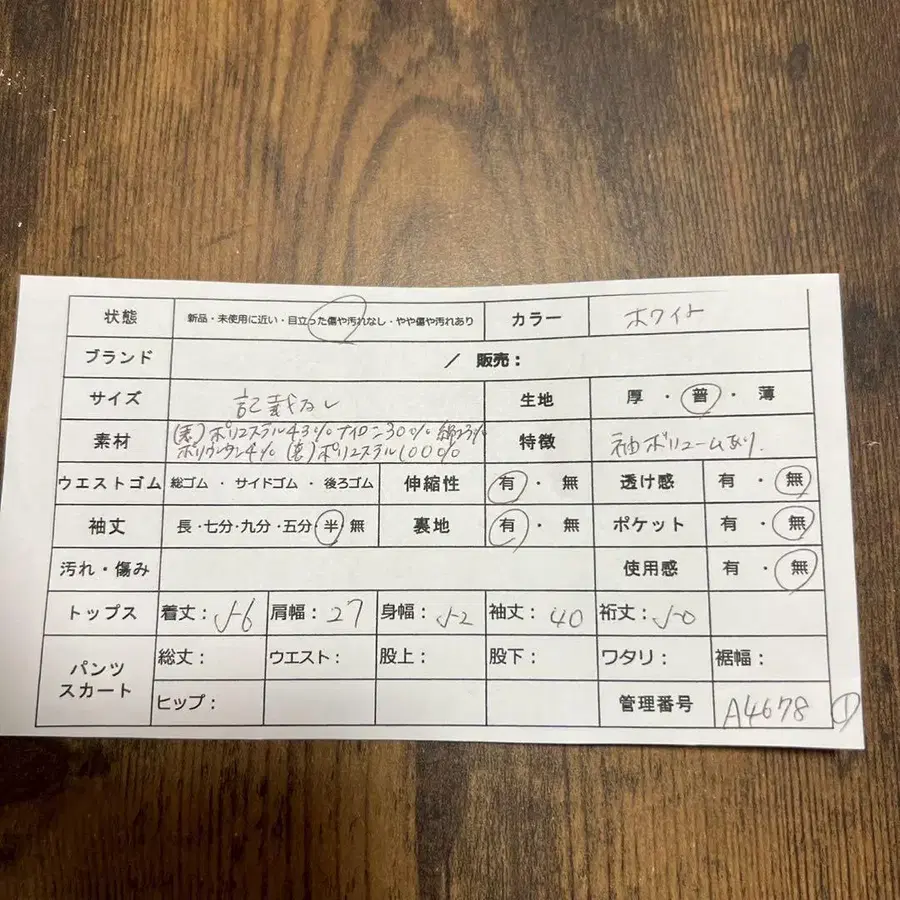 状態 新品・未使用に近い・目立った傷や汚れなし・やや傷や汚れあり カラー ホワイト
ブランド / 販売：
サイズ 記載なし 生地 厚・普・薄
素材 (表)ポリエステル43%ナイロン30%綿23%
ポリウレタン4% (裏)ポリエステル100% 特徴 袖ボリュームあり.
ウエストゴム 総ゴム・サイドゴム・後ろゴム 伸縮性 有・無 透け感 有・無
袖丈 長・七分・九分・五分・半・無 裏地 有・無 ポケット 有・無
汚れ・傷み 使用感 有・無
トップス 着丈：56 肩幅：27 身幅：52 袖丈：40 裄丈：50
パンツ スカート 総丈： ウエスト： 股上： 股下： ワタリ： 裾幅：
ヒップ： 管理番号 A4678 ①